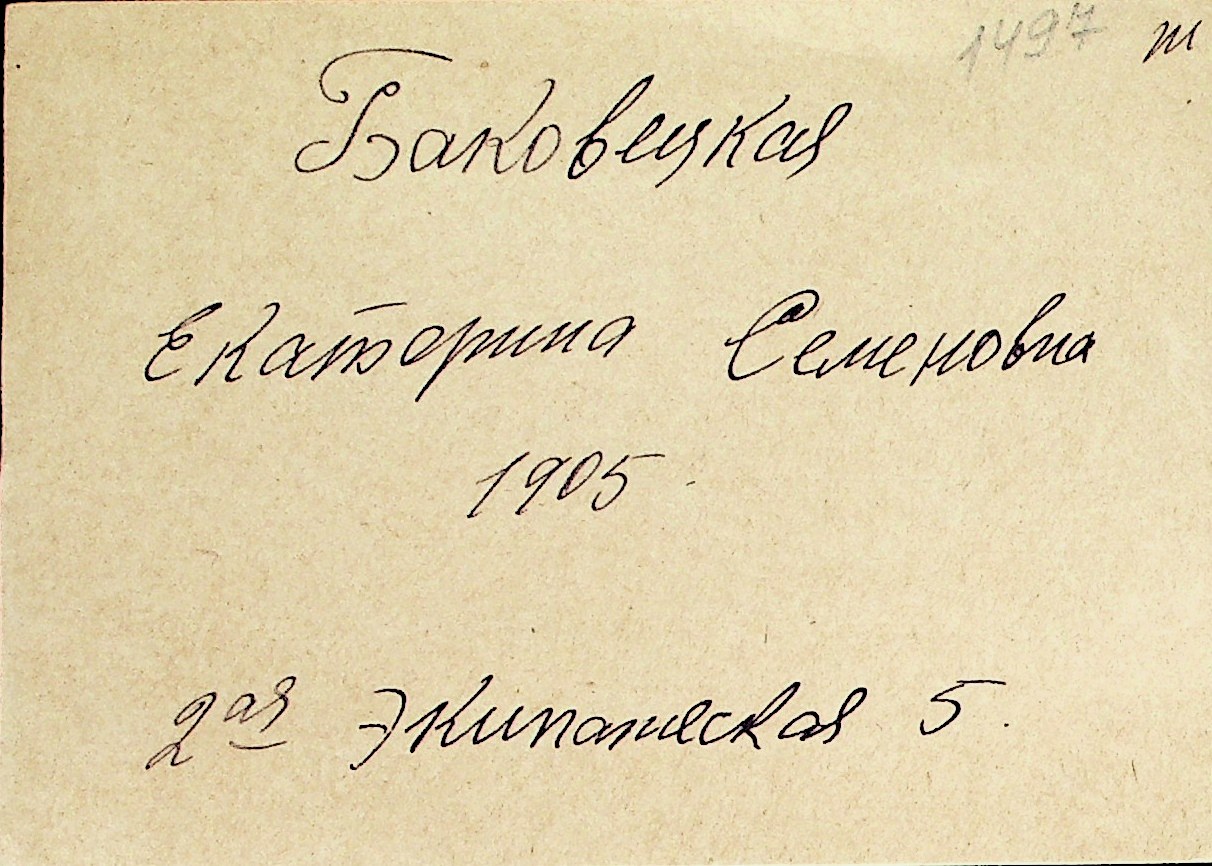 1497 т
Баковецкая
Екатерина Семеновна
1905
2ая Экипажеская 5.